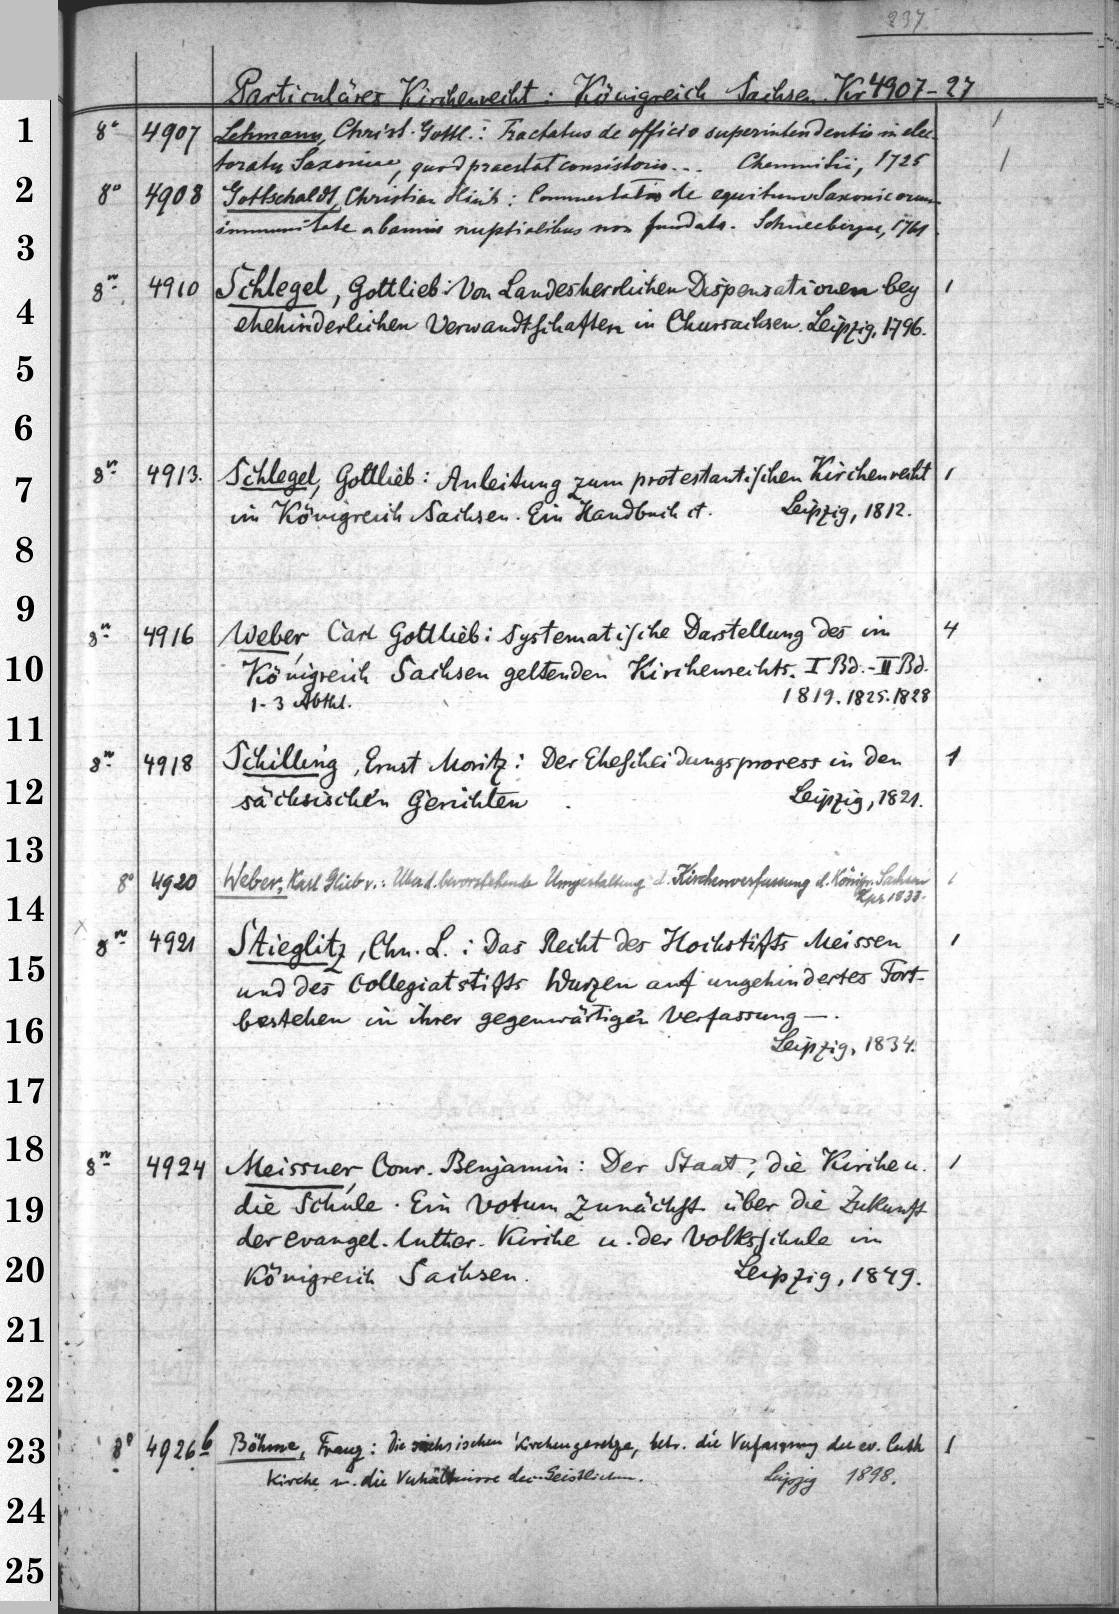 237.
Particuläres Kirchenrecht: Königreich Sachsen. Kr 4907-27
1 8° 4907 Lehmann, Christ. Gottl.: Tractatus de officio superintendentis in elec- 1
toratu Saxoniae, quod praestat consistorio... Chemnitii, 1725 1
2 8° 4908 Gottschaldt, Christian Heinr: Commentatio de equitum Saxonicorum
immunitate a bannis nuptialibus non fundata. Schneebergae, 1761.
3
4 8° 4910 Schlegel, Gottlieb: Von Landesherrlichen Dispensationen bey 1
ehehinderlichen Verwandtschaften in Chursachsen. Leipzig, 1796.
5
6
7 8° 4913. Schlegel, Gottlieb: Anleitung zum protestantischen Kirchenrecht 1
im Königreich Sachsen. Ein Handbuch et. Leipzig, 1812.
8
9
8° 4916 Weber, Carl Gottlieb: Systematische Darstellung des im 4
10 Königreich Sachsen geltenden Kirchenrechts. I Bd.-II Bd.
1-3 Abthl. 1819. 1825. 1828
11
8° 4918 Schilling, Ernst Moritz: Der Ehescheidungsprocess in den 1
12 sächsischen Gerichten Leipzig, 1821.
13
8° 4920 Weber, Karl Glieb v.: Ueb. d. bevorstehende Umgestaltung d. Kirchenverfassung d. Königr. Sachsen 1
14 Lpz 1833.
8° 4921 Stieglitz, Chn. L.: Das Recht des Hochstifts Meissen 1
15 und des Collegiatstifts Wurzen auf ungehindertes Fort-
16 bestehen in ihrer gegenwärtigen Verfassung —.
Leipzig, 1834.
17
18 8° 4924 Meissner, Conr. Benjamin: Der Staat, die Kirche u. 1
19 die Schule. Ein Votum zunächst über die Zukunft
der evangel. luther. Kirche u. der Volksschule im
20 Königreich Sachsen. Leipzig, 1849.
21
22
23 8° 4926b Böhme, Franz: Die sächsischen Kirchengesetze, betr. die Verfassung der ev. luth 1
Kirche u. die Verhältnisse der Geistlichen. Leipzig 1898.
24
25